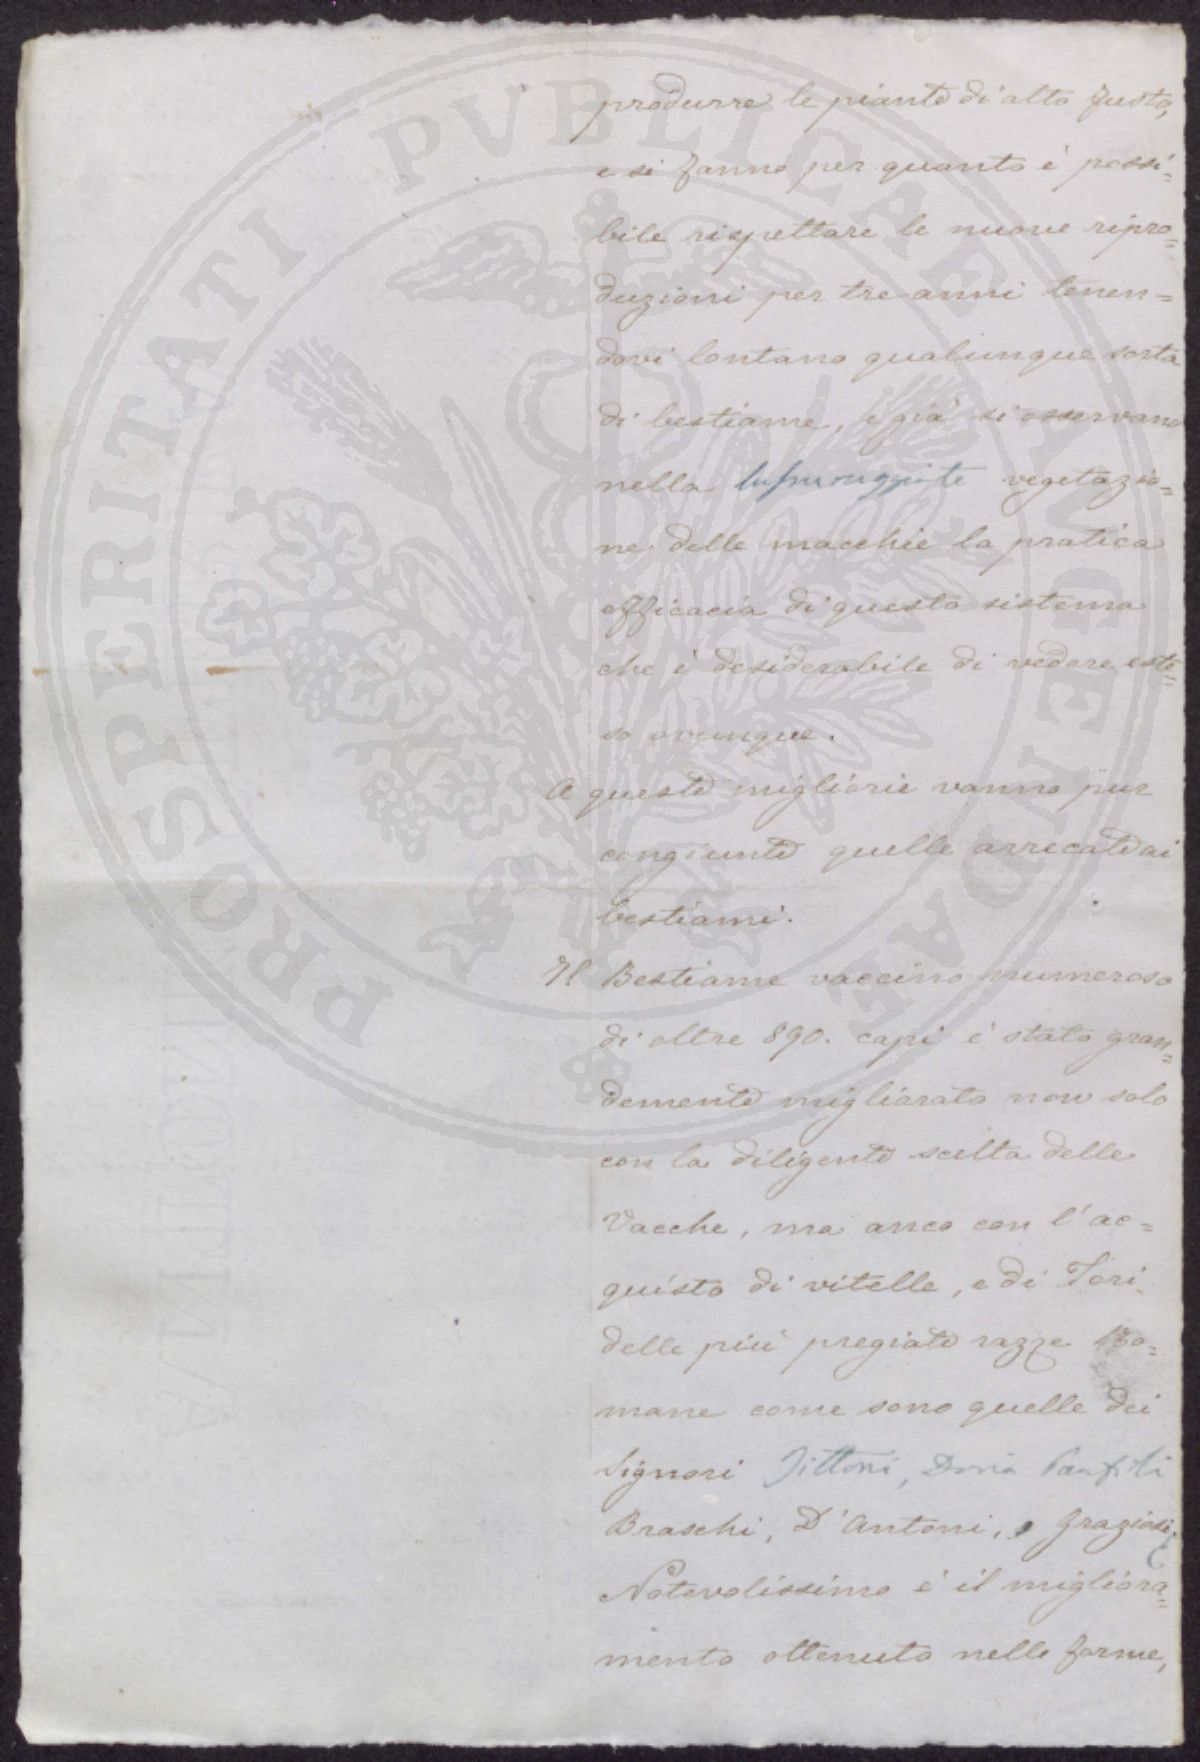 PROSPERITATI PVBLICAE AVGENDAE
produrre le piante di alto fusto,
e si fanno per quanto è possi=
bile rispettare le nuove ripro=
duzioni per tre anni tenen=
dovi lontano qualunque sorta
di bestiame, e già si osservano
nella vegetazio=
ne delle macchie la pratica
efficacia di questo sistema
che è desiderabile di vedere este=
so ovunque.
A queste migliorie vanno pur
congiunte quelle arrecate ai
bestiami.
Il Bestiame vaccino numeroso
di oltre 890. capi è stato gran=
demente migliorato non solo
con la diligente scelta delle
Vacche, ma anco con l'ac=
quisto di vitelle, e di Tori
delle più pregiate razze Ro=
mane come sono quelle dei
Signori Tittoni, Doria Panfili
Braschi, D'Antoni, Graziosi
Notevolissimo è il migliora=
mento ottenuto nelle forme,